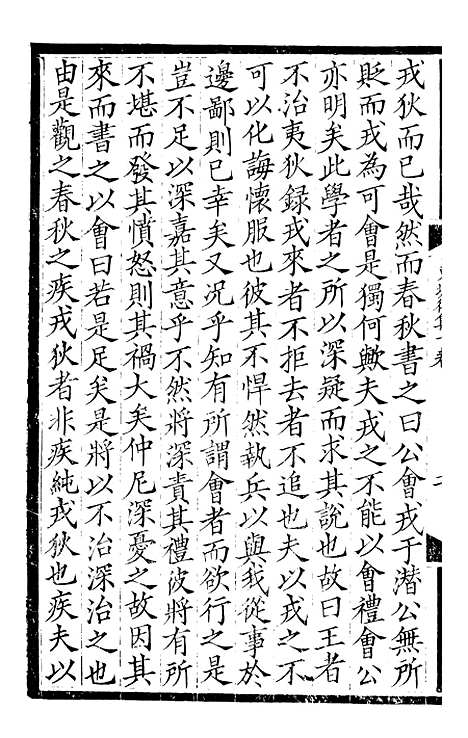 戎狄而已哉然而春秋書之曰公會戎于潛公無所
貶而戎為可會是獨何歟夫戎之不能以會禮會公
亦明矣此學者之所以深疑而求其說也故曰王者
不治夷狄録戎來者不拒去者不追也夫以戎之不
可以化誨懷服也彼其不悍然執兵以與我從事於
邊鄙則已幸矣又況乎知有所謂會者而欲行之是
豈不足以深嘉其意乎不然將深責其禮彼將有所
不堪而發其憤怒則其禍大矣仲尼深憂之故因其
來而書之以會曰若是足矣是將以不治深治之也
由是觀之春秋之疾戎狄者非疾純戎狄也疾夫以